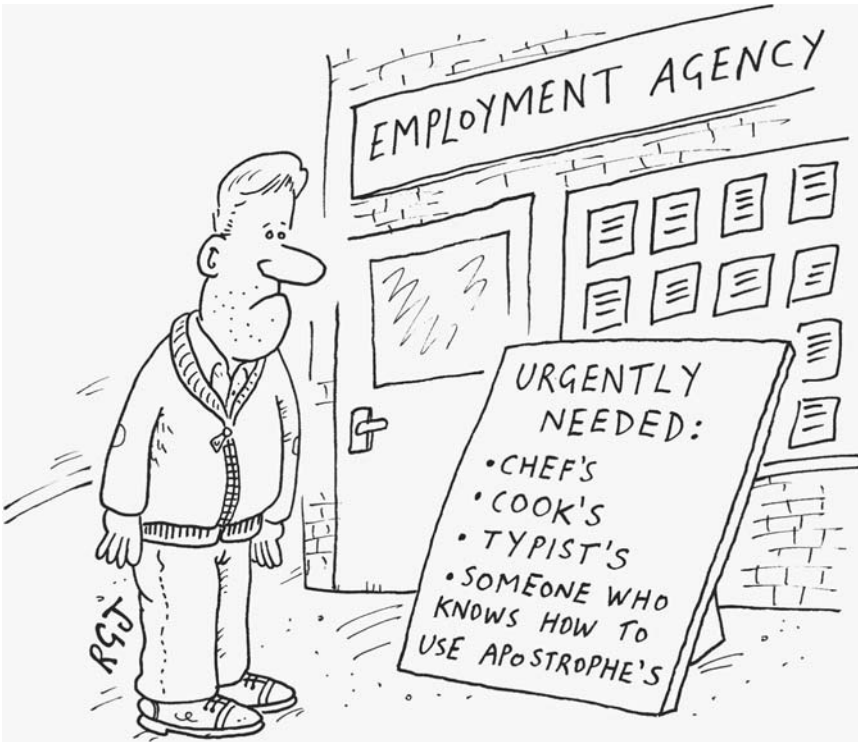 EMPLOYMENT AGENCY
URGENTLY
NEEDED:
•CHEF'S
•COOK'S
•TYPIST'S
•SOMEONE WHO
KNOWS HOW TO
USE APOSTROPHE'S
RGJ